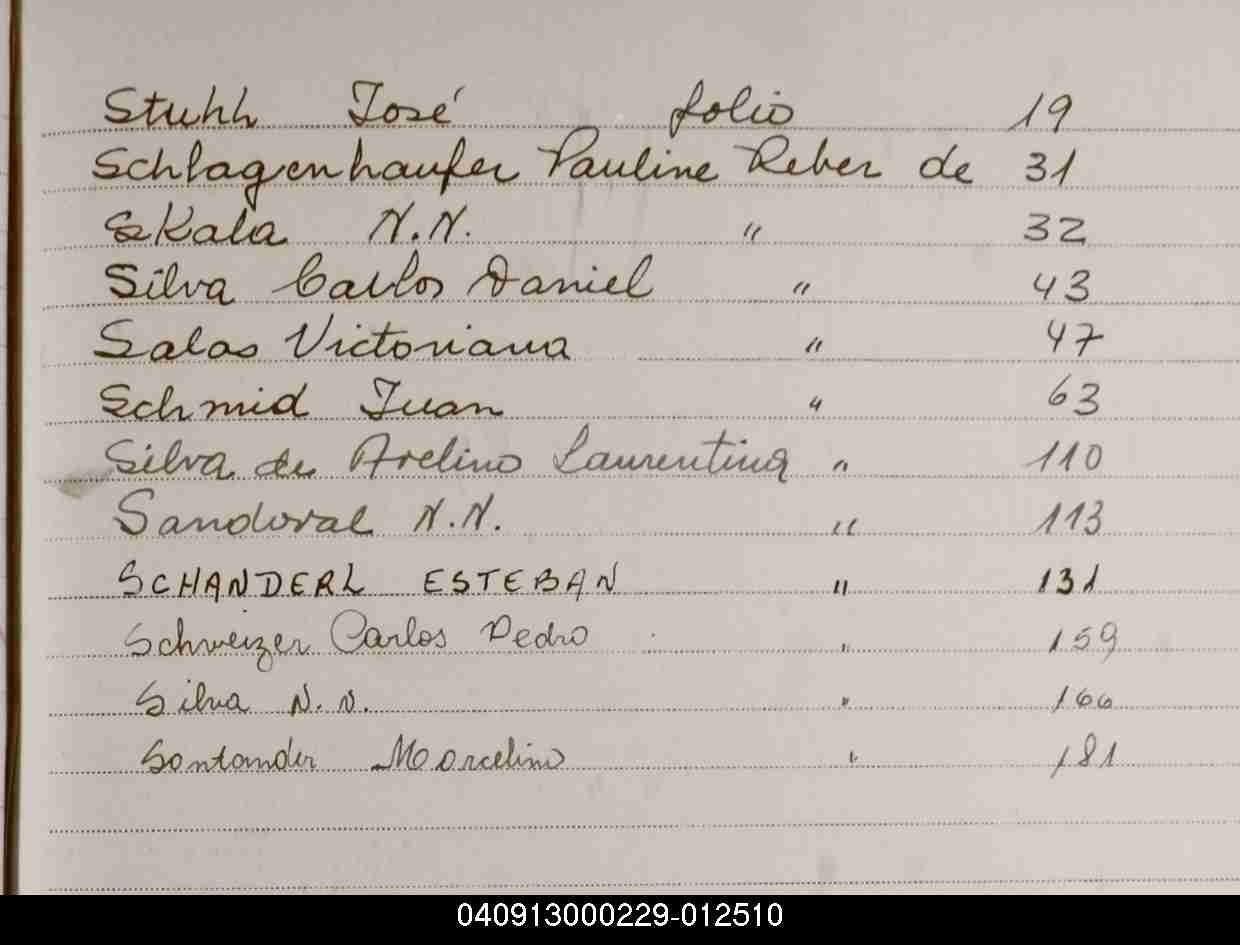 Stuhh José folio 19
Schlagenhaufer Pauline Reber de 31
Skala N.N. " 32
Silva Carlos Daniel " 43
Salas Victoriana " 47
Schmid Juan " 63
Silva de Avelino Laurentina " 110
Sandoval N.N. " 113
SCHANDERL ESTEBAN " 131
Schweizer Carlos Pedro " 159
Silva N.N. " 166
Santander Marcelino " 181
040913000229-012510